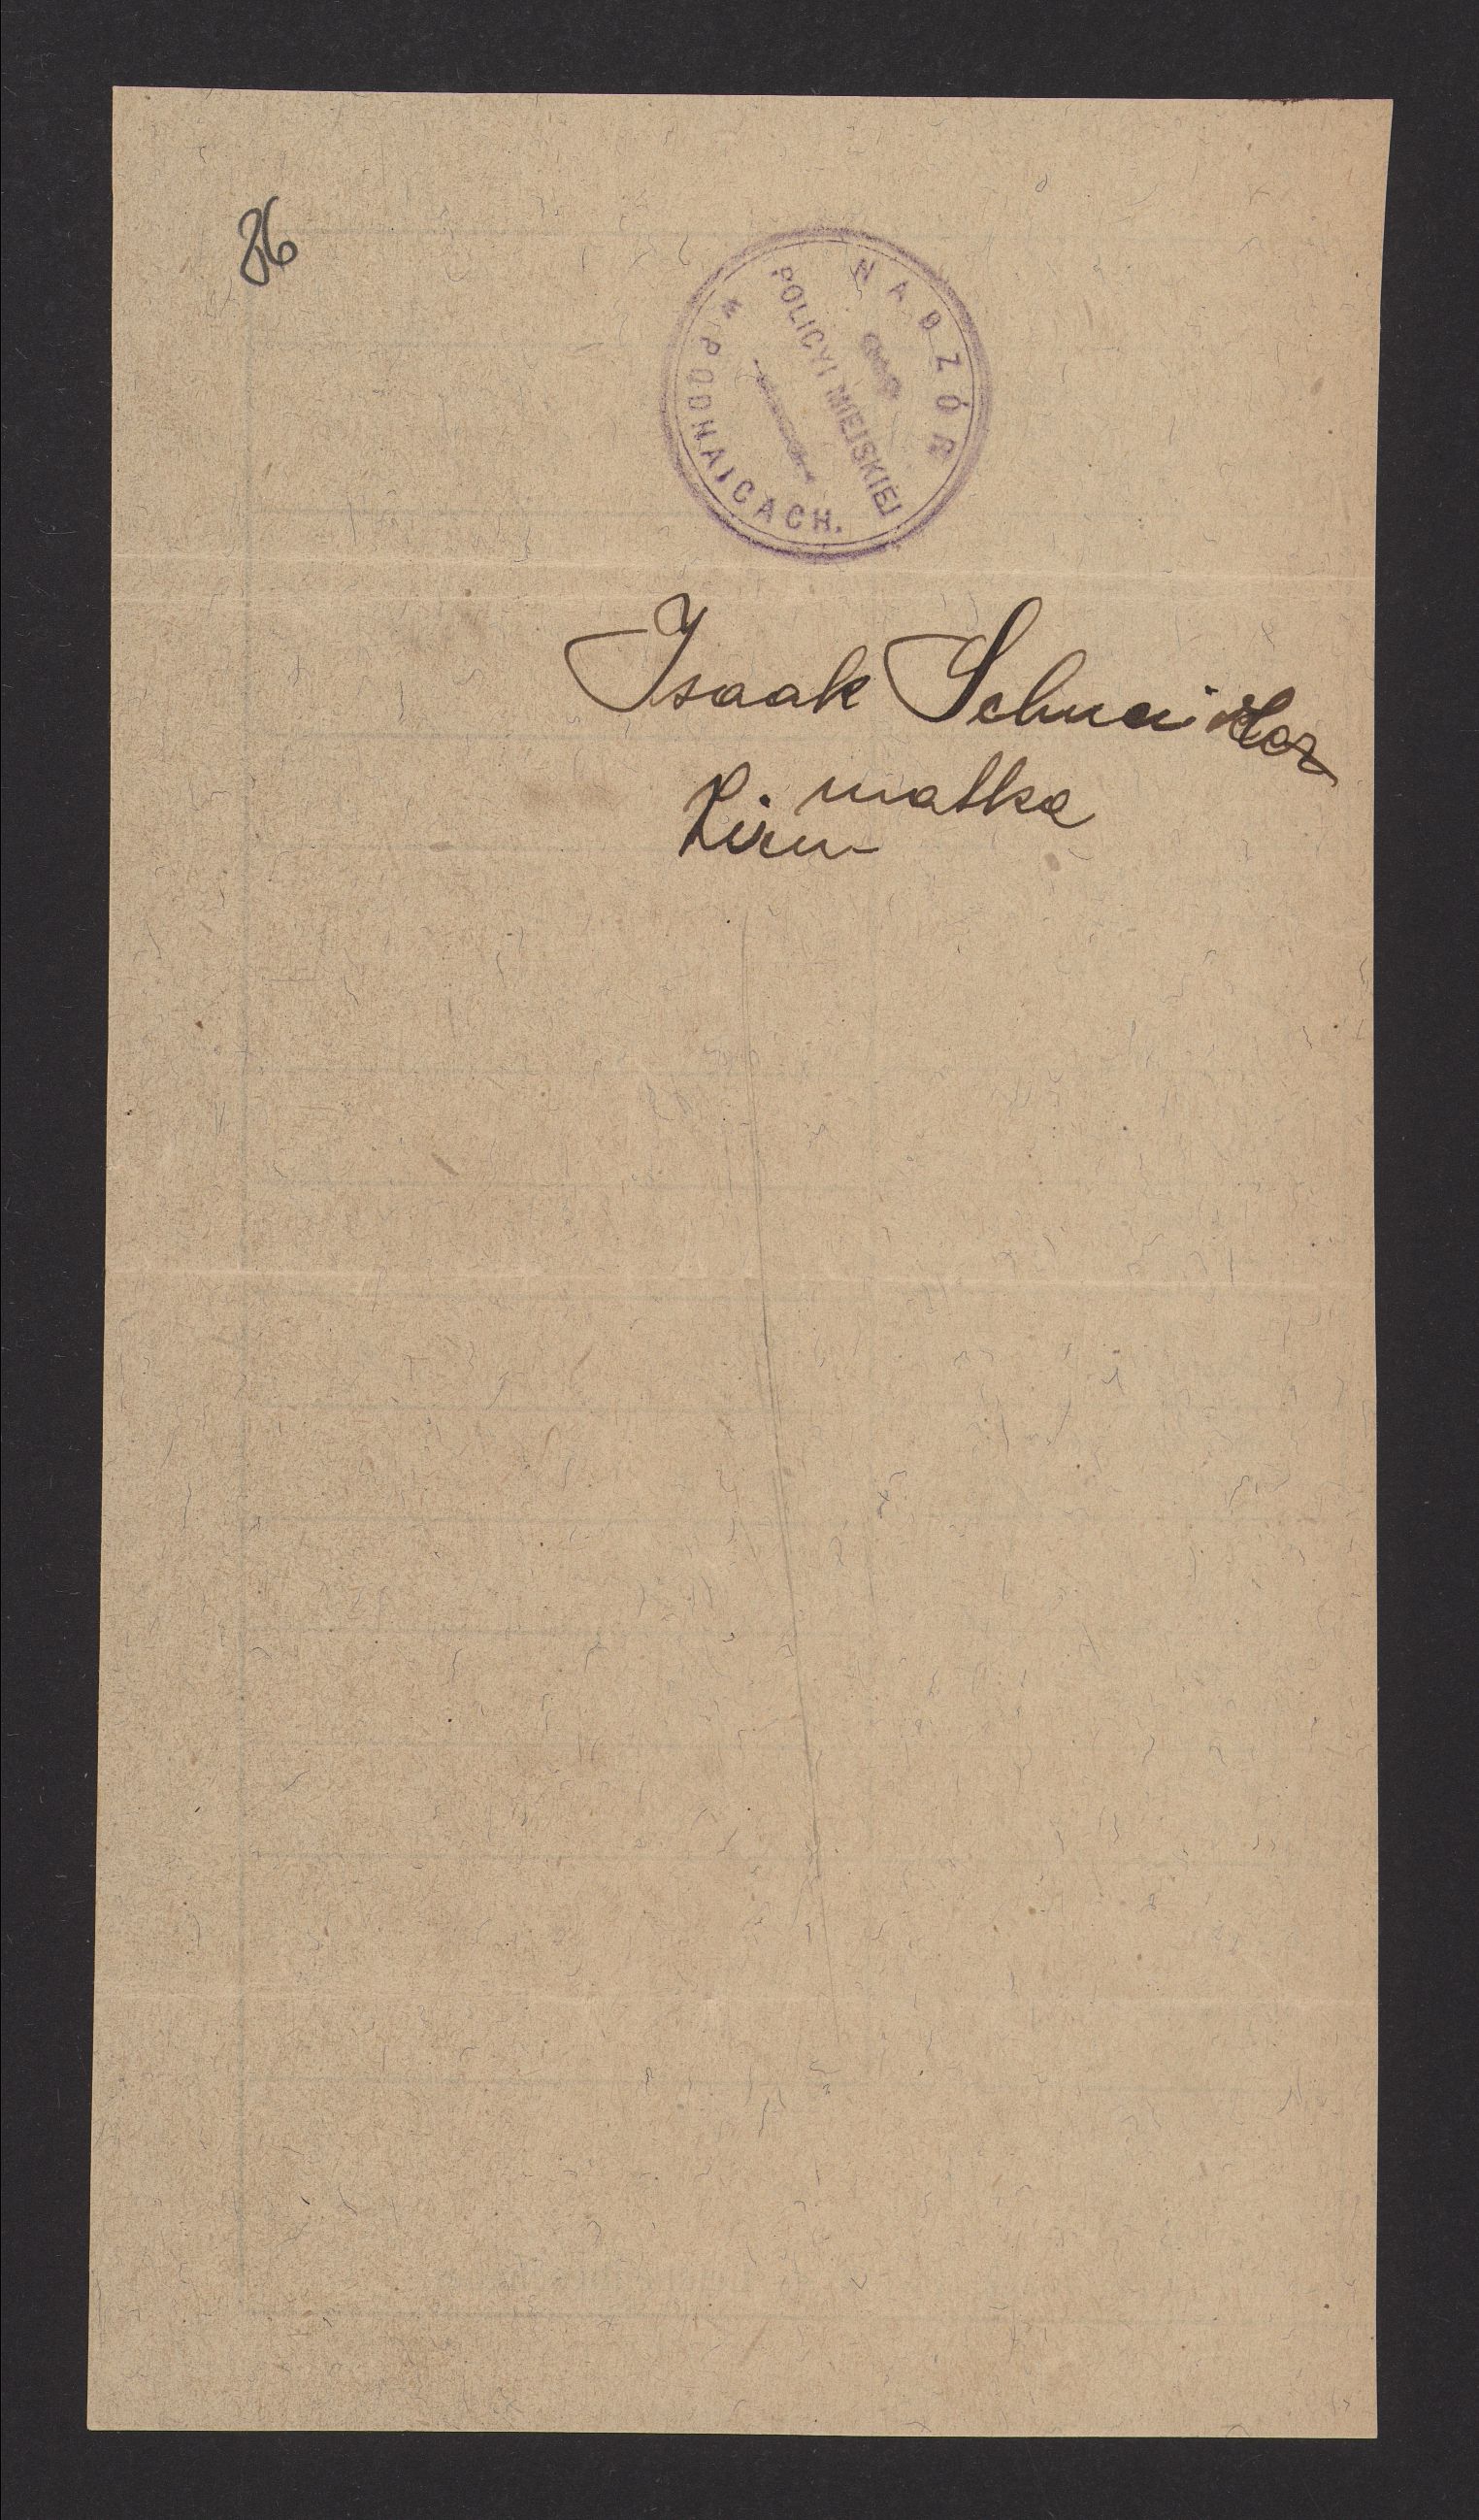 86
NADZÓR
POLICYI MIEJSKIEJ
W PODHAJCACH.
Isaak Schneider
matka